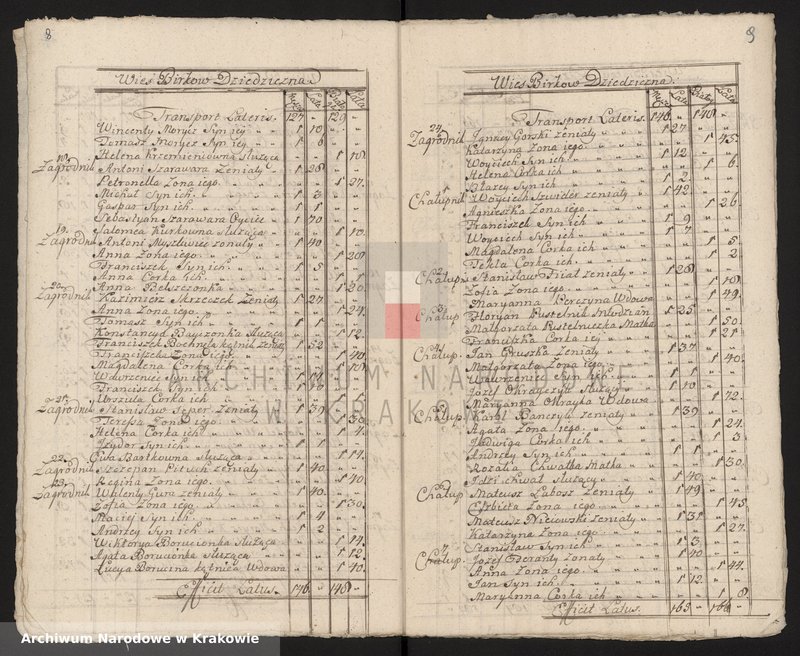 8
Wieś Birkow Dziedziczna
Męzcz. Lata Białe Lata
Transport Lateris. 127 - 129 -
Wincenty Syn iey 1 10
Tomasz Syn iey 1 6
Helena Krzemieniowna służąca 1 18
18. Zagrodnik Antoni Szarawara Zeniaty 1 28
Petronella Zona iego 1 27
Michał Syn ich 1 3
Gaspar Syn ich 1 1
Sebastyan Szarawara Oyciec 1 70
Salomea Kurkowna służąca 1 10
19. Zagrodnik Antoni zonaty 1 40
Anna Zona iego 1 20
Franciszek Syn ich 1 5
Anna Corka ich 1 1
Anna 1 30
20. Zagrodnik Kazimierz Skrzeczek Zeniaty 1 27
Anna Zona iego 1 24
Tomasz Syn ich 1 1
Służąca 1 12
Franciszek 1 52
Franciszka Zona iego 1 40
Magdalena Corka ich 1 18
Wawrzeniec Syn ich
Franciszek Syn ich 1 10
Urszula Corka ich
21. Zagrodnik Stanisław Zeniaty 1 39
Teressa Zona iego
Helena Corka ich
Izydor Syn ich 1 1
Ewa Bartkowna służąca 1 14
22. Zagrodnik Szczepan zeniaty 1 40
Regina Zona iego 1 40
23. Zagrodnik Walenty Gura zeniaty 1 40
Zofia Zona iego 1 30
Maciej Syn ich 1 4
Andrzey Syn ich 1 2
Wiktorya Borucionka służąca 1 14
Agata Borucionka służąca 1 12
Łucya Borucina Wdowa 1 40
Efficit Latus. 146 - 148 -
9
Wieś Birkow Dziedziczna.
Męzcz. Lata Białe Lata
Transport Lateris. 146 - 148 -
24. Zagrodnik Ignacy Gorski zeniaty 1 27
Katarzyna Zona iego 1 45
Woyciech Syn ich 1 12
Helena Corka ich 1 6
Błazey Syn ich 1 2
1. Chałupnik Woyciech Szwider zeniaty 1 42
Agnieszka Zona iego 1 26
Franciszek Syn ich 1 9
Woyciech Syn ich 1 7
Magdalena Corka ich 1 5
Tekla Corka ich 1 2
2. Chałup. Stanisław zeniaty 1 28
Zofia Zona iego 1 18
Maryanna Wdowa 1 49
3. Chałup. Floryan Pustelnik Młodzian 1 25
Małgorzata Matka 1 50
Franciszka Corka iey 1 21
4. Chałup. Jan Gruszka Zeniaty 1 37
Małgorzata Zona iego 1 40
Wawrzeniec Syn ich 1 1
Jozef służący 1 10
Maryanna Wdowa 1 72
5. Chałup. Karol Banczyk zeniaty 1 39
Agata Zona iego 1 24
Jadwiga Corka ich 1 3
Andrzey Syn ich 1 1
Rozalia Chwałka Matka 1 30
Idzi służący 1 40
6. Chałup. Mateusz Zeniaty 1 49
Elzbieta Zona iego 1 45
Mateusz zeniaty 1 31
Katarzyna Zona iego 1 27
Stanisław Syn ich 1 3
7. Chałup. Jozef Zonaty 1 40
Anna Zona iego 1 44
Jan Syn ich 1 12
Maryanna Corka ich 1 8
Efficit Latus. 163 - 166 -
ARCHIWUM NARODOWE
W KRAKOWIE
Archiwum Narodowe w Krakowie